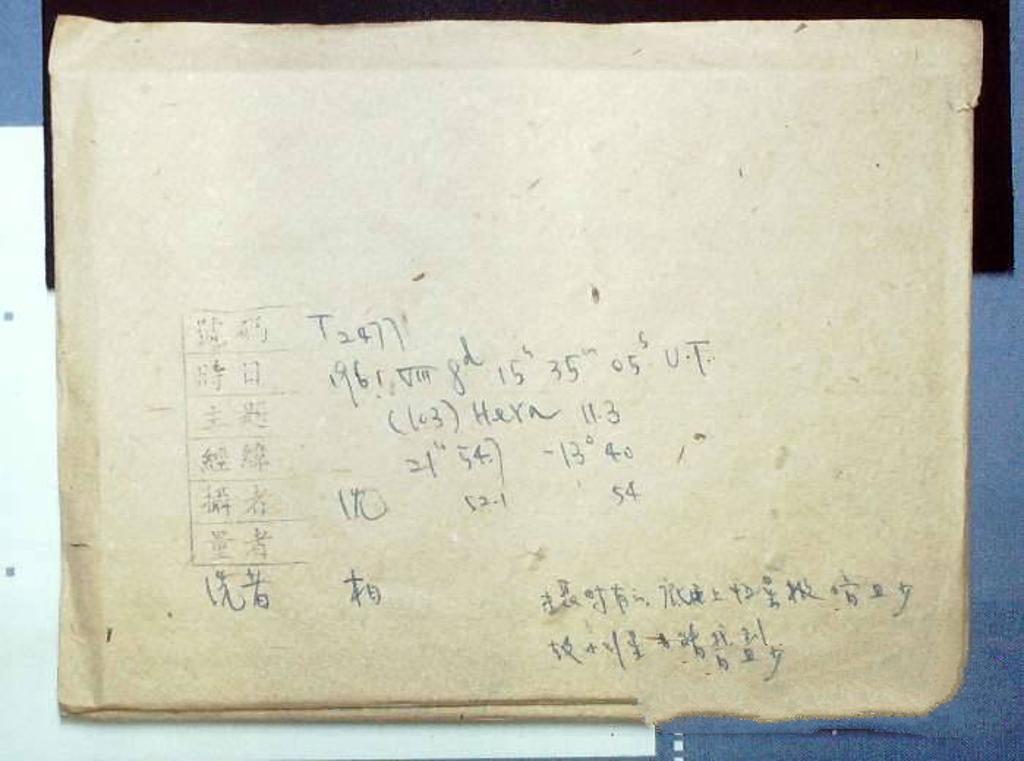 號碼 T2477
時日 1961 VIII 8d 15h 35m 05s U.T.
主題 (103) Hera 11.3
經緯 21h 54.7 -13° 40
攝者 沈 52.1 54
量者
洗者 柏
時有 底 上恒星 暗且少
故 星 暗 且少